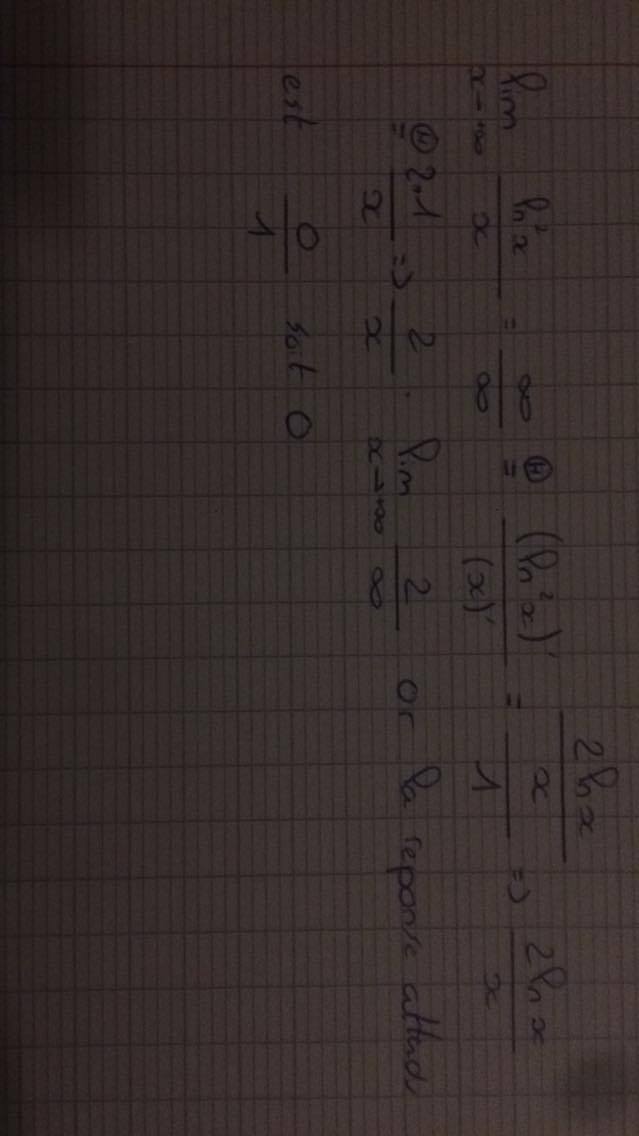 lim x→∞ ln²x / x = ∞/∞ Ⓗ= (ln²x)' / (x)' = (2ln x / x) / 1 => 2ln x / x
Ⓗ= 2.1 / x => 2/x . lim x→∞ 2/∞ or la reponse attendu
est 0/1 soit 0